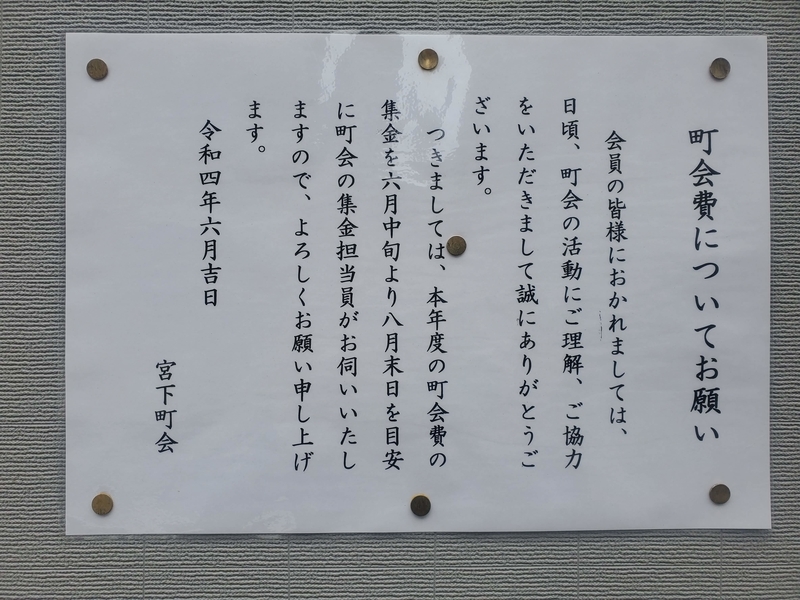 町会費についてお願い
会員の皆様におかれましては、
日頃、町会の活動にご理解、ご協力
をいただきまして誠にありがとうご
ざいます。
つきましては、本年度の町会費の
集金を六月中旬より八月末日を目安
に町会の集金担当員がお伺いいたし
ますので、よろしくお願い申し上げ
ます。
令和四年六月吉日
宮下町会